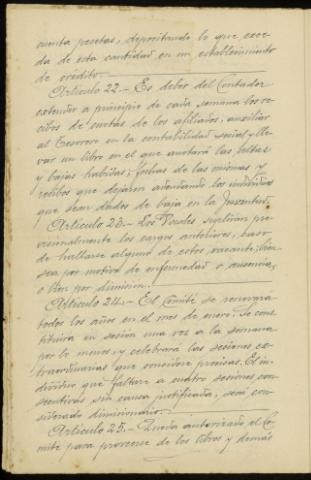 cuenta pesetas, depositando lo que exce-
da de esta cantidad en un establecimiento
de crédito.
Artículo 22.- Es deber del Contador
extender a principio de cada semana los re-
cibos de cuotas de los afiliados, auxiliar
al Tesorero en la contabilidad social y lle-
var un libro en el que anotará las altas
y bajas habidas, fechas de las mismas y
recibos que dejaron adeudando los individuos
que sean dados de baja en la Juventud.
Artículo 23.- Los Vocales suplirán pro-
visionalmente los cargos anteriores, caso
de hallarse alguno de estos vacante, bien
sea por motivo de enfermedad o ausencia,
o bien por dimisión.
Artículo 24.- El Comité se renovará
todos los años en el mes de enero. Se cons-
tituirá en sesión una vez a la semana
por lo menos, y celebrará las sesiones ex-
traordinarias que considere precisas. El in-
dividuo que faltare a cuatro sesiones con-
secutivas sin causa justificada, será con-
siderado dimisionario.
Artículo 25.- Queda autorizado el Co-
mité para proveerse de los libros y demás